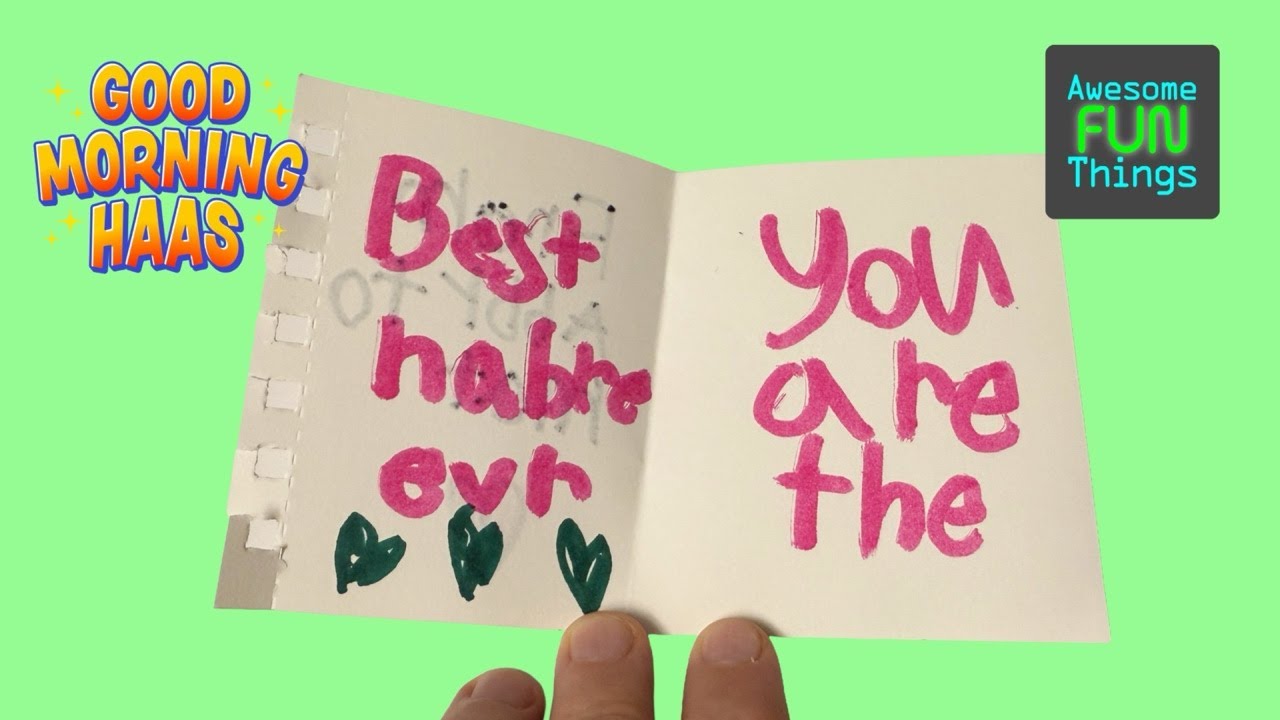 GOOD
MORNING
HAAS
Awesome
FUN
Things
Best
nabre
evr
You
are
the